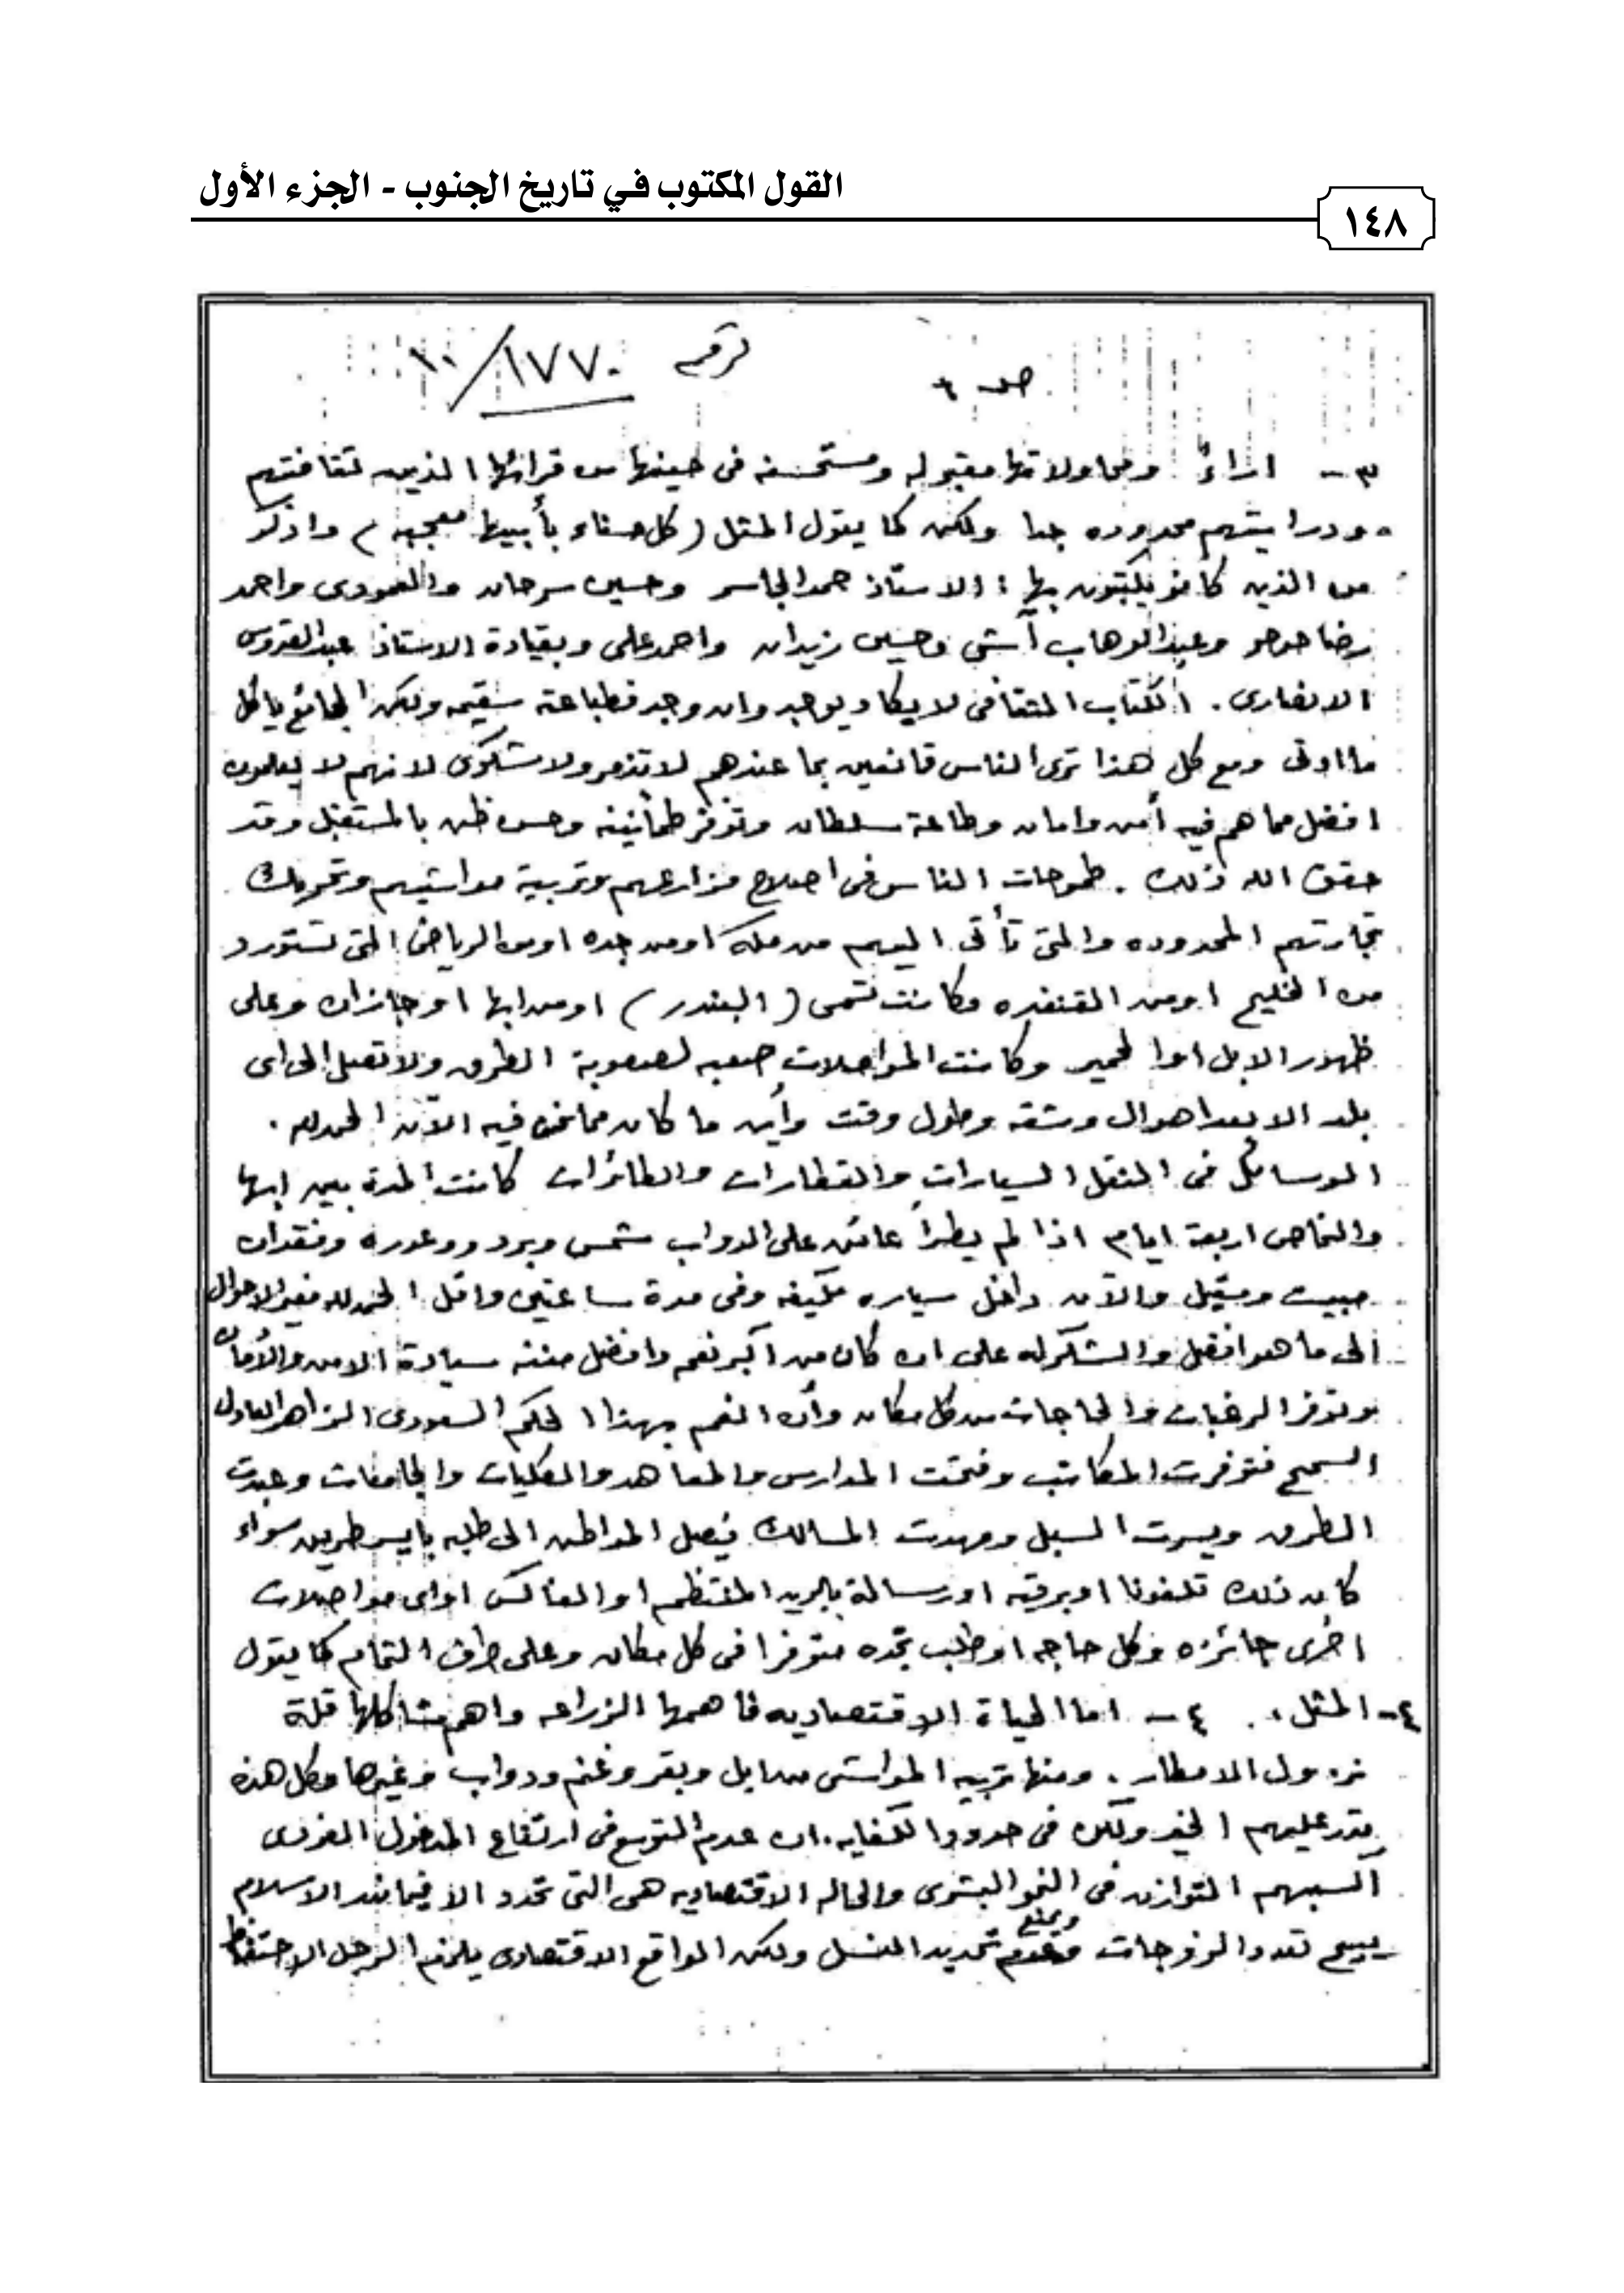 القول المكتوب في تاريخ الجنوب - الجزء الأول
١٤٨
ص ٦ لرقم ١٧٧٠/١٠
٣ - اراءً ومحاولاتها مقبوله ومستحسنه فى حينها من قرائها الذين ثقافتهم
ودرايتهم محدوده جدا ولكن كما يقول المثل (كل حسناء بأبيها معجبه) واذكر
من الذين كانو يكتبون بها : الاستاذ حمد الجاسر وحسين سرحان والعمودى واحمد
رضا حوحو وعبد الوهاب آشى وحسين زيدان واحمد على وبقيادة الاستاذ عبد القدوس
الانصارى . الكتاب الثقافى لا يكاد يوجد وان وجد فطباعته سقيمه ولكن الجائع ياكل
ما اوتى ومع كل هذا ترى الناس قانعين بما عندهم لا تذمر ولا شكوى لانهم لا يعلمون
افضل مما هم فيه أمن وامان وطاعة سلطان وتوفر طمأنينه وحسن ظن بالمستقبل وقد
حقق الله ذلك . طموحات الناس فى اصلاح مزارعهم وتربية مواشيهم وتحريك
تجارتهم المحدوده والتى تأتى اليهم من مكه او من جده او من الرياض التى تستورد
من الخليج او من القنفذه وكانت تسمى (البندر) او من ابها او جازان وعلى
ظهور الابل او الحمير وكانت المواصلات صعبه لصعوبة الطرق ولا تصل الى اى
بلد الا بعد اهوال ومشقه وطول وقت وأين ما كان مما نحن فيه الآن الحمد لله .
الوسائل فى النقل السيارات والقطارات والطائرات كانت المدة بين ابها
والنماص اربعة ايام اذا لم يطرأ عائق على الدواب شمس وبرد ووعوره وفقدان
مبيت ومقيل والآن داخل سياره مكيفه وفى مدة ساعتين واقل الحمد لله مغير الاحوال
الى ما هو افضل والشكر له على ان كان من اكبر نعمه وافضل مننه سيادة الامن والأمان
وتوفر الرغبات والحاجات من كل مكان وأن انعم بهذا الحكم السعودى الزاهر العادل
السمح فتوفرت المكاتب وفتحت المدارس والمعاهد والكليات والجامعات وعبدت
الطرق ويسرت السبل ومهدت المسالك فيصل المواطن الى طلبه بايسر طريق سواء
كان ذلك تلفونا او برقيه او رسالة بالبريد المنتظم او الفاكس او اى مواصلات
اخرى جائزه وكل حاجه او طلب تجده متوفرا فى كل مكان وعلى طرف الثمام كما يقول
٤- المثل . ٤ - اما الحياة الاقتصاديه فاهمها الزراعه واهم مشاكلها قلة
نزول الامطار . ومنها تربيه المواشى من ابل وبقر وغنم ودواب وغيرها وكل هذه
يدر عليهم الخير ولكن فى حدود الكفايه . ان عدم التوسع فى ارتفاع المدخول الفردى
التوازن فى النمو البشرى والحاله الاقتصاديه هى التى تحدد الا فيما ند الاسلام
يبيح تعدد الزوجات ويمنع تحديد النسل ولكن الواقع الاقتصادى يلزم الرجل الاحتفاظ